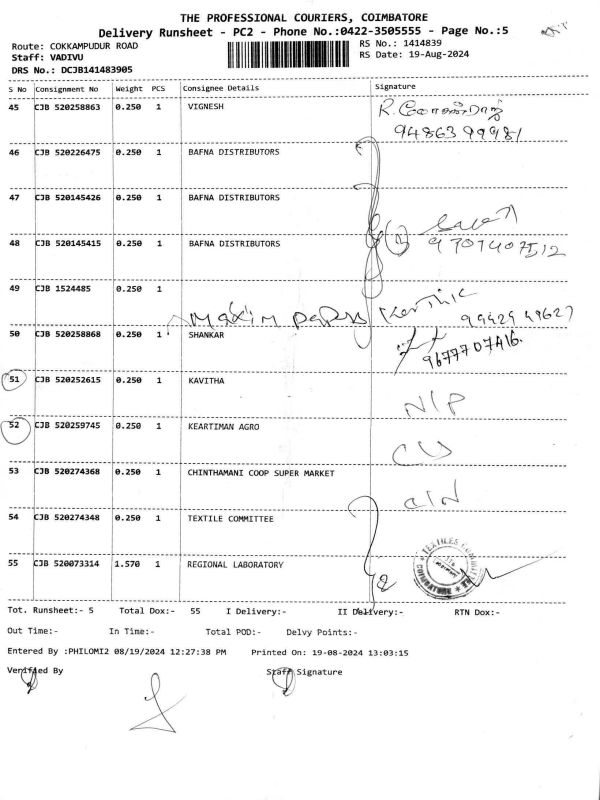 THE PROFESSIONAL COURIERS, COIMBATORE
Delivery Runsheet - PC2 - Phone No.:0422-3505555 - Page No.:5
Route: COKKAMPUDUR ROAD
RS No.: 1414839
Staff: VADIVU
RS Date: 19-Aug-2024
DRS No.: DCJB141483905
S No Consignment No Weight PCS Consignee Details Signature
45 CJB 520258863 0.250 1 VIGNESH
9486399981
46 CJB 520226475 0.250 1 BAFNA DISTRIBUTORS
47 CJB 520145426 0.250 1 BAFNA DISTRIBUTORS
48 CJB 520145415 0.250 1 BAFNA DISTRIBUTORS
3
9707407512
49 CJB 1524485 0.250 1
Maxim papers Karthic 99429 49627
50 CJB 520258868 0.250 1 SHANKAR
9677707416.
51 CJB 520252615 0.250 1 KAVITHA
N/P
52 CJB 520259745 0.250 1 KEARTIMAN AGRO
53 CJB 520274368 0.250 1 CHINTHAMANI COOP SUPER MARKET
C/N
54 CJB 520274348 0.250 1 TEXTILE COMMITTEE
55 CJB 520073314 1.570 1 REGIONAL LABORATORY
2
TEXTILES COMMITTEE
COIMBATORE
Tot. Runsheet:- 5 Total Dox:- 55 I Delivery:- II Delivery:- RTN Dox:-
Out Time:- In Time:- Total POD:- Delvy Points:-
Entered By :PHILOMI2 08/19/2024 12:27:38 PM Printed On: 19-08-2024 13:03:15
Verified By Staff Signature